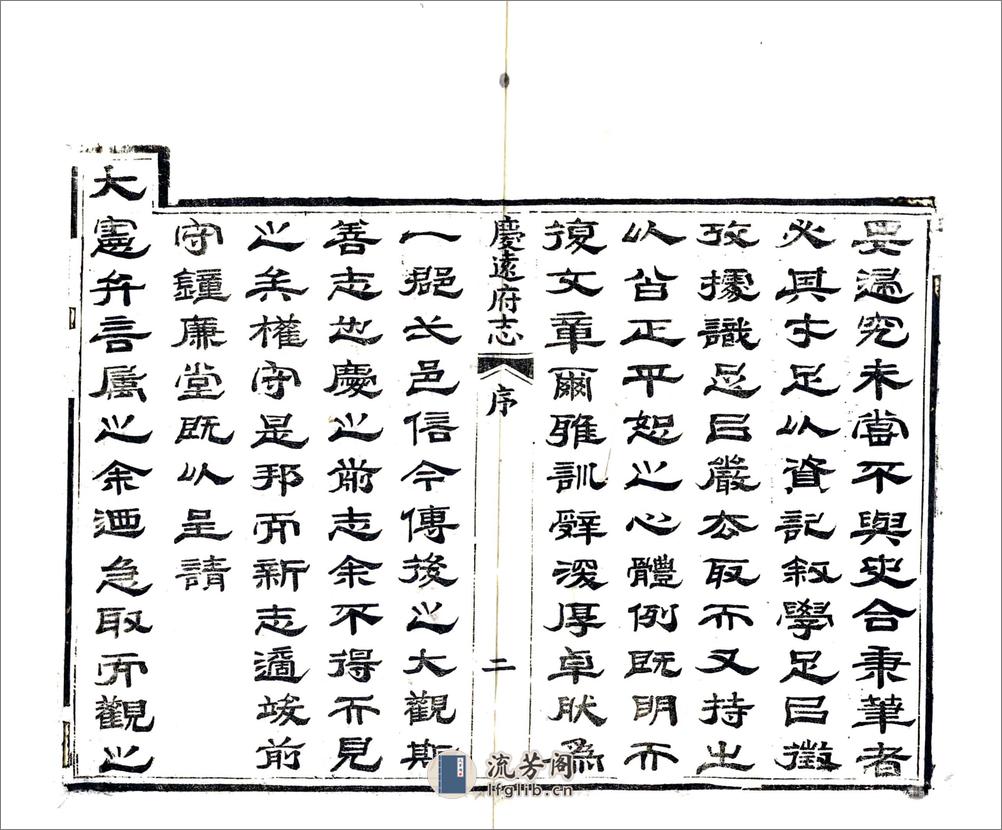 究未嘗不與史合秉筆者
必其才足以資記敘學足㠯徵
攷據識足㠯嚴去取而又持之
以正平恕之心體例既明而
復文章爾雅訓辭深厚卓肰為
慶遠府志 序 二
一郡邑信今傳後之大觀斯
善志也慶之前志余不得而見
之矣權守是邦而新志適竣前
守鐘廉堂既以呈請
大憲弁言屬之余迺急取而觀之
流芳阁
lfglib.cn